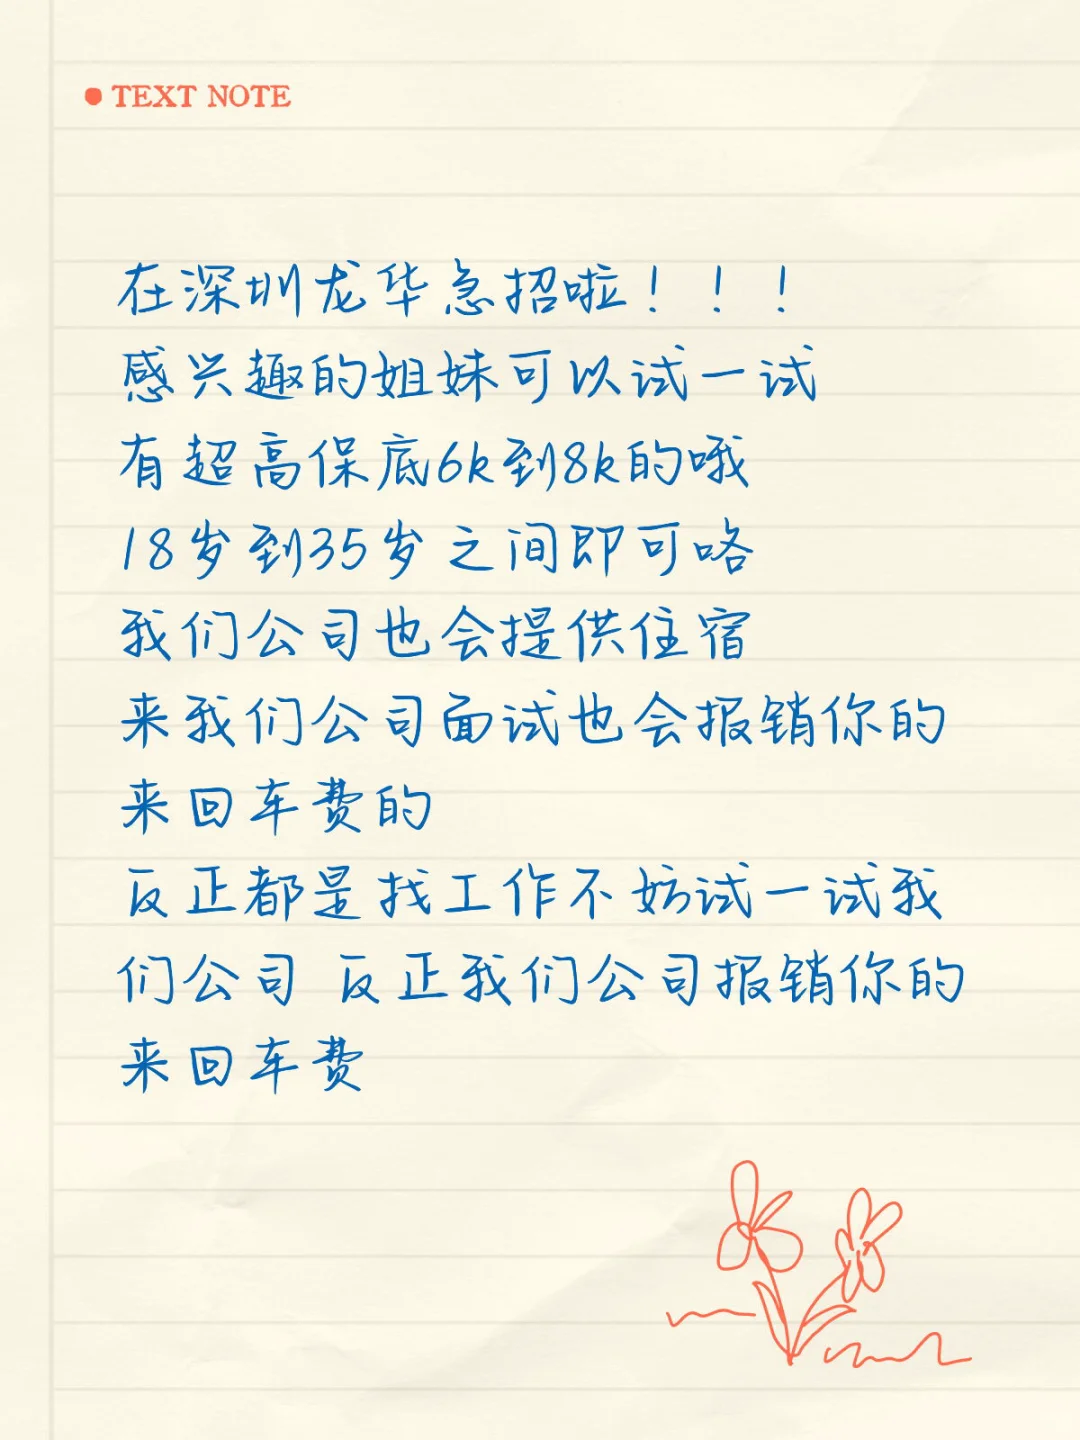 TEXT NOTE
在深圳龙华急招啦！！！
感兴趣的姐妹可以试一试
有超高保底6k到8k的哦
18岁到35岁之间即可咯
我们公司也会提供住宿
来我们公司面试也会报销你的
来回车费的
反正都是找工作不妨试一试我
们公司 反正我们公司报销你的
来回车费